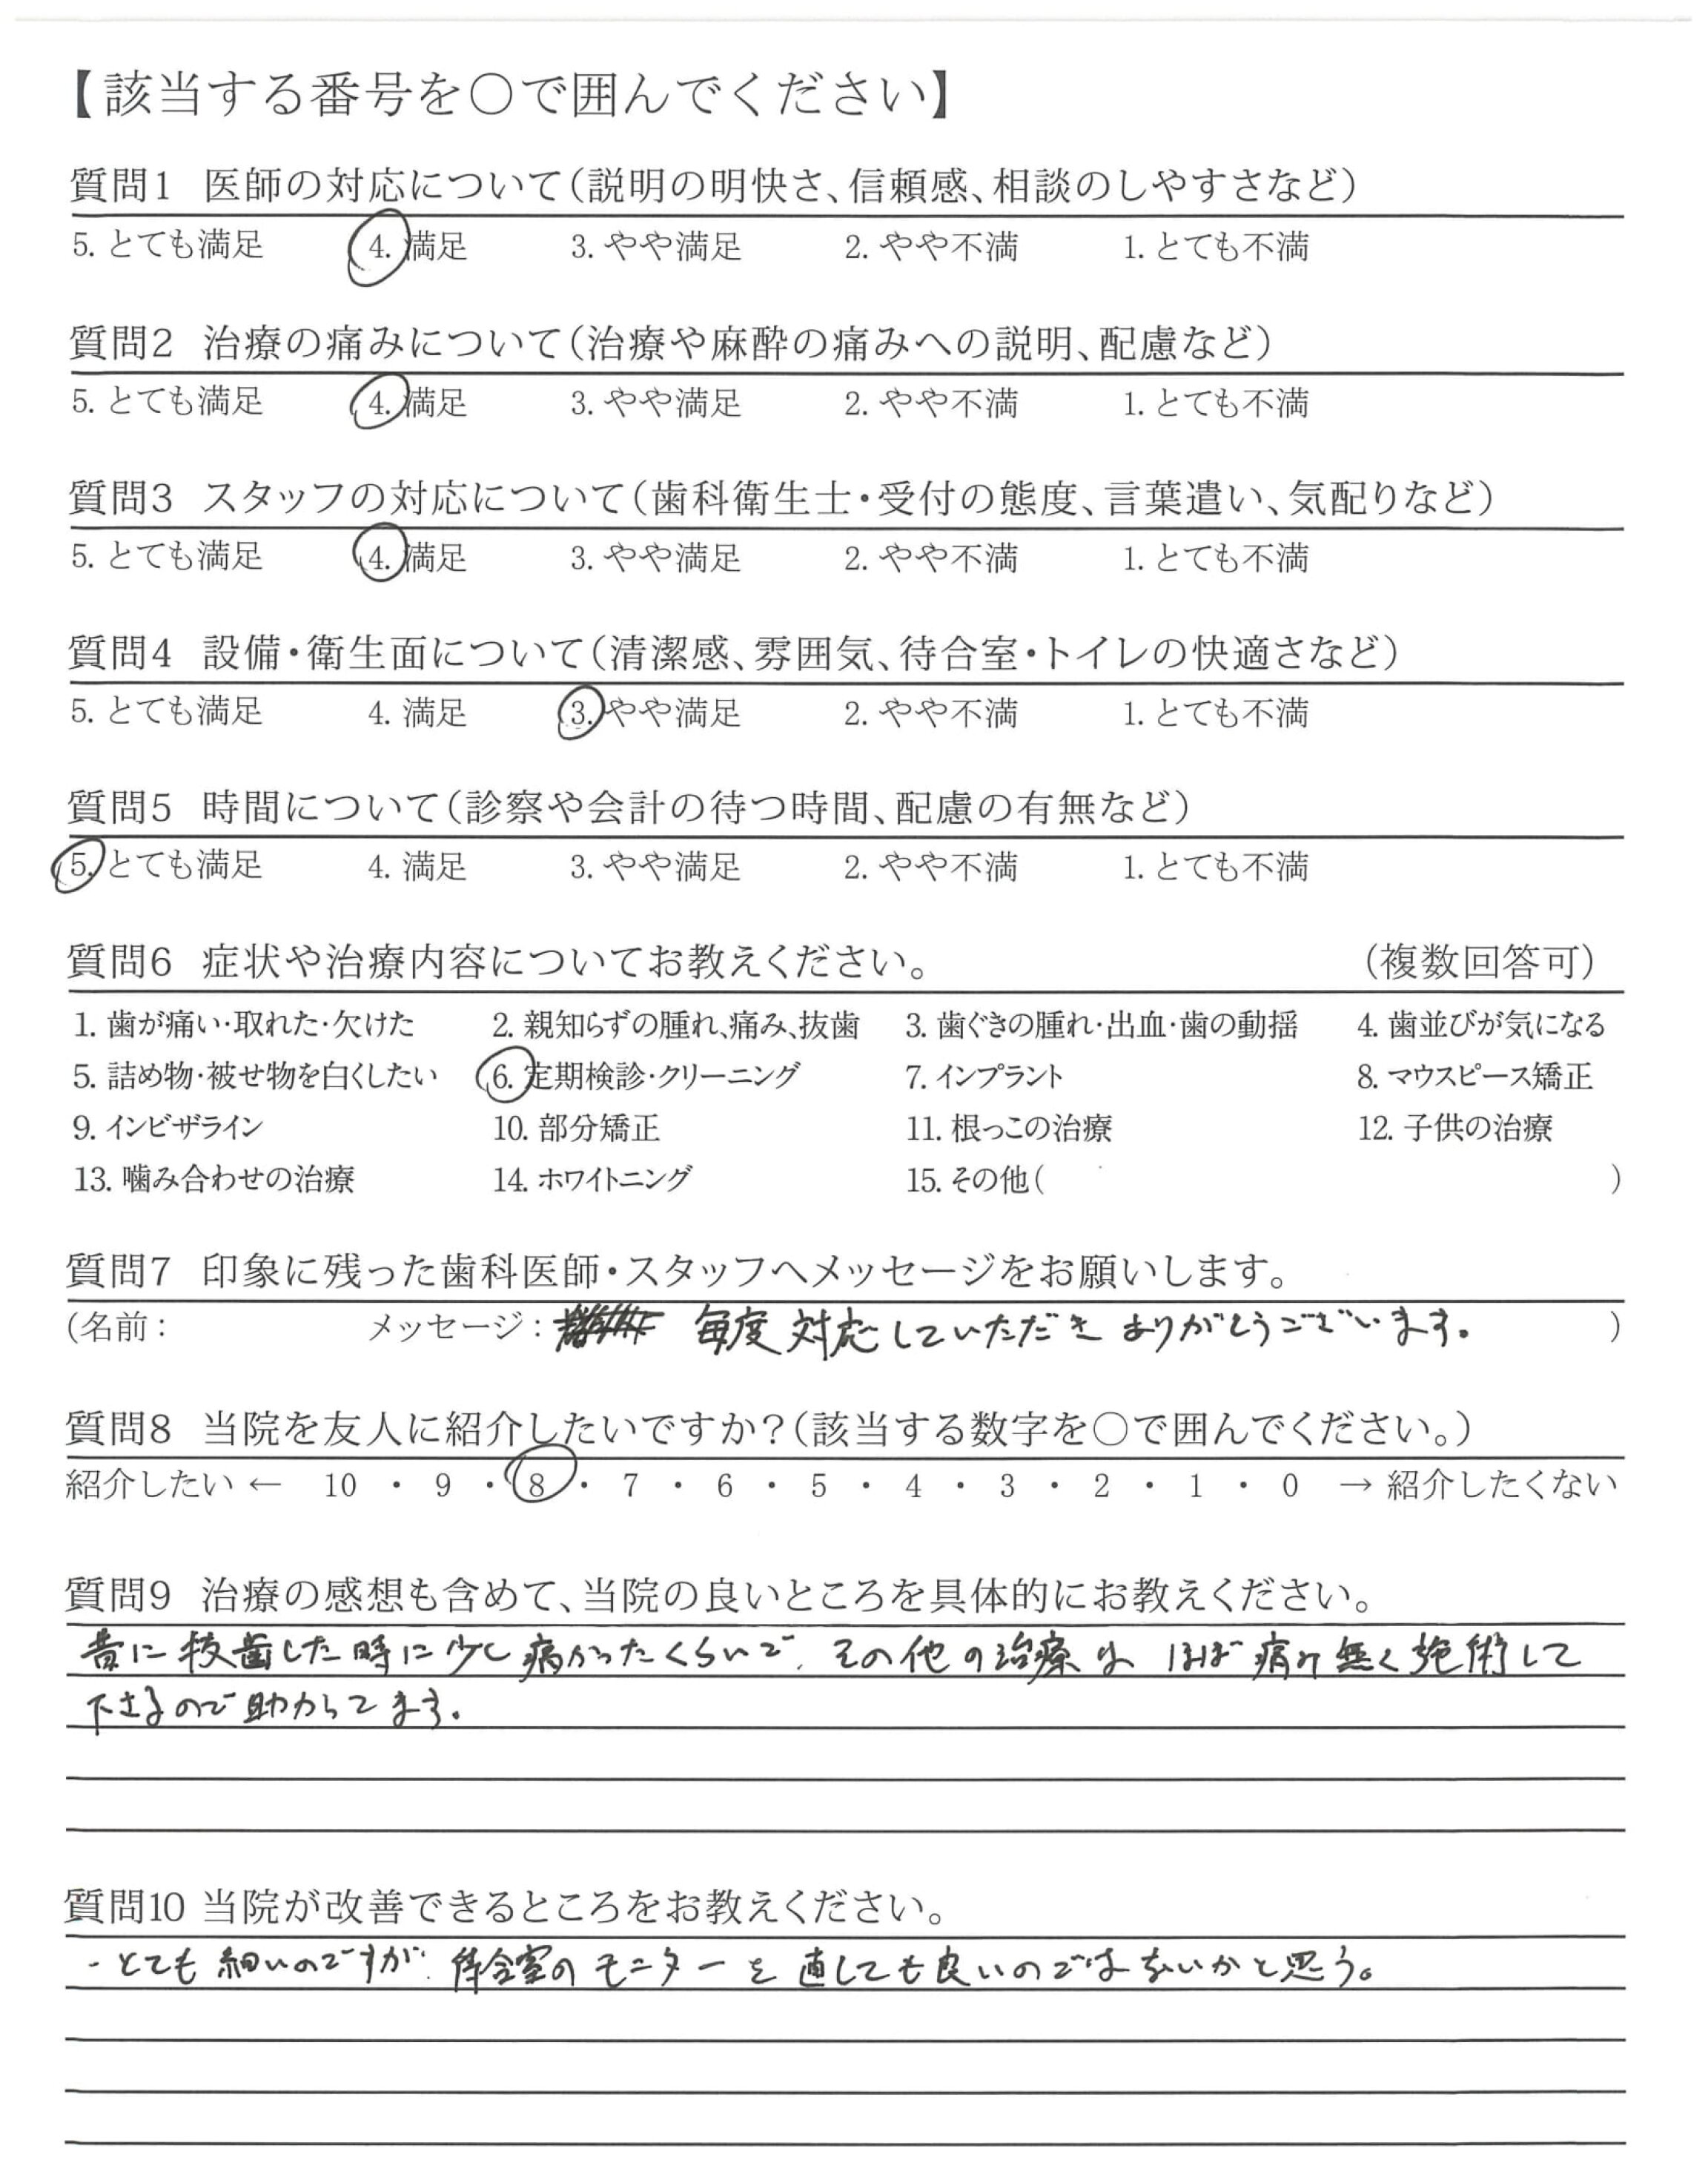 【該当する番号を〇で囲んでください】
質問1 医師の対応について(説明の明快さ、信頼感、相談のしやすさなど)
5. とても満足 4. 満足 3. やや満足 2. やや不満 1. とても不満
質問2 治療の痛みについて(治療や麻酔の痛みへの説明、配慮など)
5. とても満足 4. 満足 3. やや満足 2. やや不満 1. とても不満
質問3 スタッフの対応について(歯科衛生士・受付の態度、言葉遣い、気配りなど)
5. とても満足 4. 満足 3. やや満足 2. やや不満 1. とても不満
質問4 設備・衛生面について(清潔感、雰囲気、待合室・トイレの快適さなど)
5. とても満足 4. 満足 3. やや満足 2. やや不満 1. とても不満
質問5 時間について(診察や会計の待つ時間、配慮の有無など)
5. とても満足 4. 満足 3. やや満足 2. やや不満 1. とても不満
質問6 症状や治療内容についてお教えください。 (複数回答可)
1. 歯が痛い・取れた・欠けた 2. 親知らずの腫れ、痛み、抜歯 3. 歯ぐきの腫れ・出血・歯の動揺 4. 歯並びが気になる
5. 詰め物・被せ物を白くしたい 6. 定期検診・クリーニング 7. インプラント 8. マウスピース矯正
9. インビザライン 10. 部分矯正 11. 根っこの治療 12. 子供の治療
13. 噛み合わせの治療 14. ホワイトニング 15. その他( )
質問7 印象に残った歯科医師・スタッフへメッセージをお願いします。
(名前: メッセージ: 毎度対応していただきありがとうございます。 )
質問8 当院を友人に紹介したいですか?(該当する数字を〇で囲んでください。)
紹介したい ← 10 ・ 9 ・ 8 ・ 7 ・ 6 ・ 5 ・ 4 ・ 3 ・ 2 ・ 1 ・ 0 → 紹介したくない
質問9 治療の感想も含めて、当院の良いところを具体的にお教えください。
昔に抜歯した時に少し痛かったくらいで、その他の治療は ほぼ痛み無く施術して
下さるので助かってます。
質問10 当院が改善できるところをお教えください。
・とても細いのですが、待合室のモニターを直しても良いのではないかと思う。